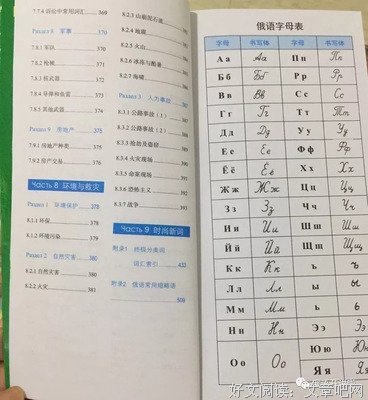 7.7.4 诉讼中常用词汇 369
Раздел 8 军事 370
7.8.1 军队
7.8.2 枪械
7.8.3 核武器
7.8.4 导弹和鱼雷
7.8.5 其他武器
Раздел 9 房地产 375
7.9.1 房地产种类 375
7.9.2 房产交易 376
Часть 8 环境与救灾
Раздел 1 环境保护 378
8.1.1 环保 378
8.1.2 环境污染 379
Раздел 2 自然灾害 381
8.2.1 自然灾害 381
8.2.2 火灾 381
8.2.3 山崩泥石流
8.2.4 地震
8.2.5 火山
8.2.6 冰冻与酷暑
8.2.7 海啸
Раздел 3 人为事故
8.3.1 公路事故（1）
8.3.2 公路事故（2）
8.3.3 抢劫及盗窃
8.3.4 火灾现场
8.3.5 命案现场
8.3.6 恐怖主义
8.3.7 战争
Часть 9 时尚新词
附录1 终极分类词
词汇索引 433
附录2 俄语常用缩略语
509
俄语字母表
字母 书写体 字母 书写体
А а А а П п П п
Б б Б б Р р Р р
В в В в С с С с
Г г Г г Т т Т т
Д д Д д У у У у
Е е Е е Ф ф Ф ф
Ё ё Ё ё Х х Х х
Ж ж Ж ж Ц ц Ц ц
З з З з Ч ч Ч ч
И и И и Ш ш Ш ш
Й й Й й Щ щ Щ щ
К к К к ъ ъ
Л л Л л ы ы
М м М м ь ь
Н н Н н Э э Э э
О о О о Ю ю Ю ю
Я я Я я
好文阅读：文章吧网